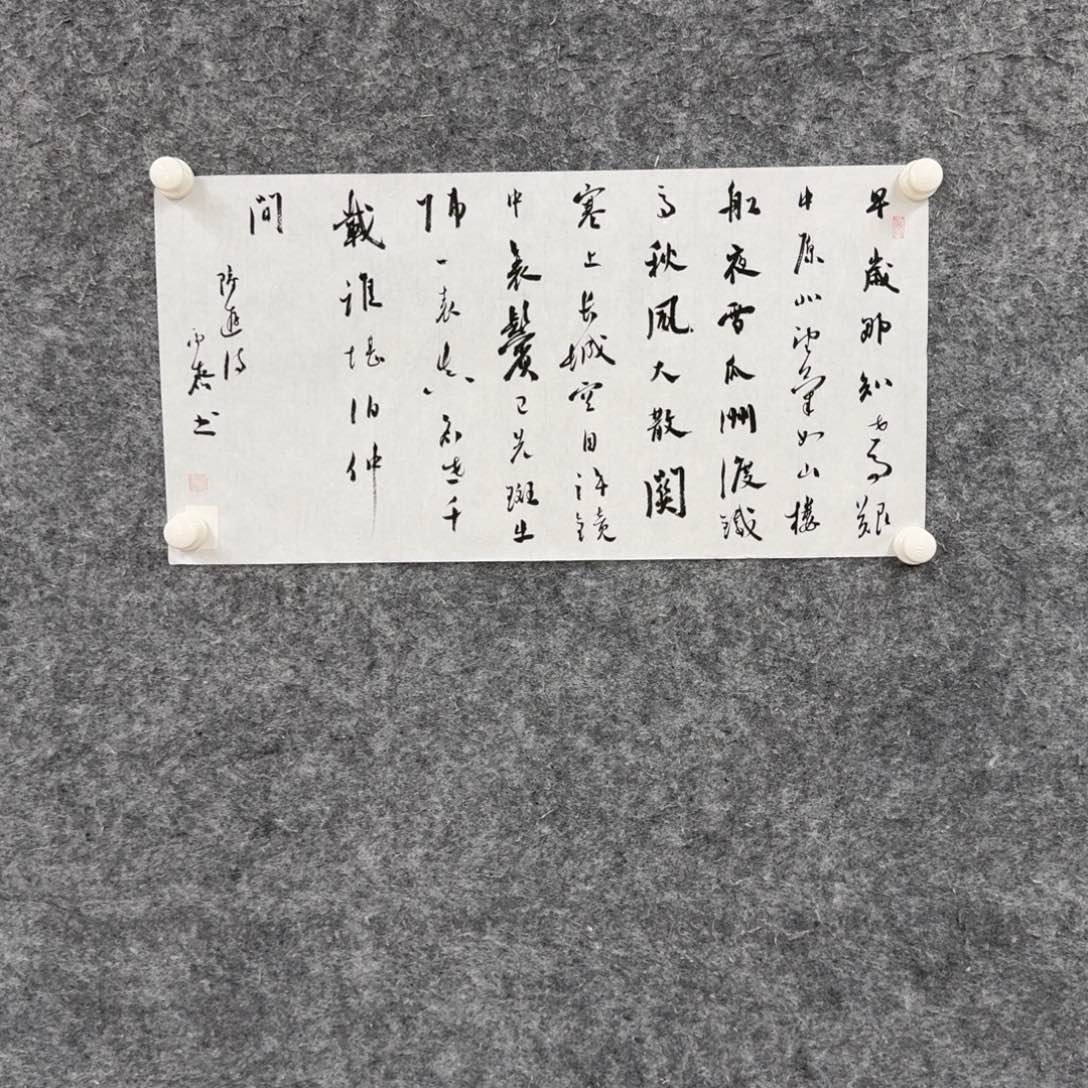 早歲那知世事艱
中原北望氣如山樓
船夜雪瓜洲渡鐵
馬秋風大散關
塞上長城空自許鏡
中衰鬢已先斑出
師一表真名世千
載誰堪伯仲
間
陸遊詩
书